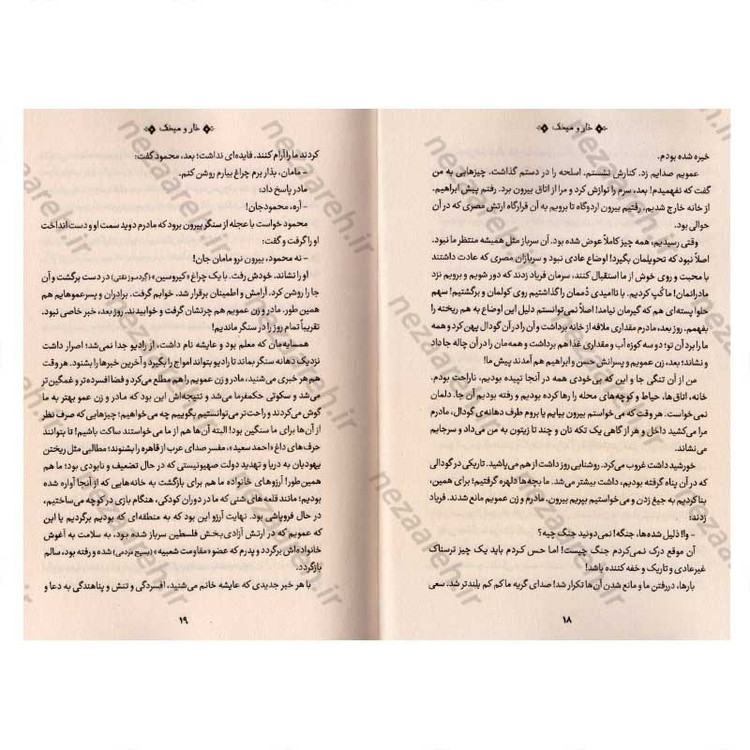 خار و میخک
خیره شده بودم.
عمویم صدایم زد. کنارش نشستم. اسلحه را در دستم گذاشت. چیزهایی به من
گفت که نفهمیدم! بعد، سرم را نوازش کرد و مرا از اتاق بیرون برد. رفتم پیش ابراهیم.
از خانه خارج شدیم، رفتیم بیرون اردوگاه تا برویم به آن قرارگاه ارتش مصری که در آن
حوالی بود.
وقتی رسیدیم، همه چیز کاملاً عوض شده بود. آن سرباز مثل همیشه منتظر ما نبود.
اصلاً نبود که تحویلمان بگیرد! اوضاع عادی نبود و سربازان مصری که عادت داشتند
با محبت و روی خوش از ما استقبال کنند، سرمان فریاد زدند که دور شویم و برویم نزد
مادرانمان! ما گپ کردیم. با ناامیدی دُممان را گذاشتیم روی کولمان و برگشتیم! سهم
حلوا پسته‌ای هم که گیرمان نیامد! اصلاً نمی‌توانستم دلیل این اوضاع به هم ریخته را
بفهمم. روز بعد، مادرم مقداری ملافه از خانه برداشت و آن را در آن گودال پهن کرد و همه
ما را برد آن تو؛ دو سه کوزه آب و مقداری غذا هم برداشت و همه‌مان را در آن چاله جا داد
و نشاند؛ بعد، زن عمویم و پسرانش حسن و ابراهیم هم آمدند پیش ما!
من از آن تنگی جا و این که بی‌خودی همه در آنجا تپیده بودیم، ناراحت بودم.
خانه، اتاق‌ها، حیاط و کوچه‌های محله را رها کرده بودیم و رفته بودیم آن جا. دلمان
نمی‌خواست. هر وقت که می‌خواستم بیرون بیایم یا بروم طرف دهانه‌ی گودال، مادرم
مرا می‌کشید داخل و هر از گاهی یک تکه نان و چند تا زیتون به من می‌داد و سرجایم
می‌نشاند.
خورشید داشت غروب می‌کرد. روشنایی روز داشت از هم می‌پاشید. تاریکی در گودالی
که در آن پناه گرفته بودیم، داشت بیشتر می‌شد. ما بچه‌ها دلهره گرفتیم؛ برای همین،
بنا کردیم به جیغ زدن و می‌خواستیم بپریم بیرون. مادرم و زن عمویم مانع شدند. فریاد
زدند:
- وا! ذلیل شده‌ها، جنگه! نمی‌دونید جنگ چیه؟
آن موقع درک نمی‌کردم جنگ چیست! اما حس کردم باید یک چیز ترسناک
غیرعادی و تاریک و خفه کننده باشد!
بارها، دررفتن ما و مانع شدن آن‌ها تکرار شد! صدای گریه ما کم کم بلندتر شد. سعی
۱۸
خار و میخک
کردند ما را آرام کنند. فایده‌ای نداشت؛ بعد، محمود گفت:
- مامان، بذار برم چراغ بیارم روشن کنم.
مادر پاسخ داد:
- آره، محمودجان!
محمود خواست با عجله از سنگر بیرون برود که مادرم دوید سمت او و دست انداخت
او را گرفت و گفت:
- نه محمود، بیرون نرو مامان جان!
او را نشاند. خودش رفت. با یک چراغ «کیروسین» (گردسوز نفتی) در دست برگشت و آن
جا را روشن کرد. آرامش و اطمینان برقرار شد. خوابم گرفت. برادران و پسرعموهایم هم
همین طور. مادر و زن عمویم هم چرتشان گرفت و خوابیدند. روز بعد، خبر خاصی نبود.
تقریباً تمام روز را در سنگر ماندیم!
همسایه‌مان که معلم بود و عایشه نام داشت، از رادیو جدا نمی‌شد؛ اصرار داشت
نزدیک دهانه سنگر بماند تا رادیو بتواند امواج را بگیرد و آخرین خبرها را بشنود. هر وقت
هم هر خبری می‌شنید، مادر و زن عمویم را هم مطلع می‌کرد و فضا افسرده‌تر و غمگین تر
می‌شد و سکوتی حکمفرما می‌شد و نتیجه‌اش این بود که مادر و زن عمو بهتر به ما
گوش می‌کردند و راحت‌تر می‌توانستیم بگوییم چه می‌خواهیم؛ چیزهایی که صرف نظر
از آن‌ها برای ما سنگین بود! البته آن‌ها هم از ما می‌خواستند ساکت باشیم! تا بتوانند
حرف‌های داغ «احمد سعید»، مفسر صدای عرب از قاهره را بشنوند؛ مطالبی مثل ریختن
یهودیان به دریا و تهدید دولت صهیونیستی که در حال تضعیف و نابودی بود؛ ما هم
همین‌طور! آرزوهای خانواده ما هم برای بازگشت به خانه‌هایی که از آنجا آواره شده
بودیم؛ مانند قلعه‌های شنی که ما در دوران کودکی، هنگام بازی در کوچه می‌ساختیم،
در حال فروپاشی بود. نهایت آرزو این بود که به منطقه‌ای که بودیم برگردیم یا این
که عمویم که در ارتش آزادی‌بخش فلسطین سرباز شده بود، به سلامت به آغوش
خانواده‌اش برگردد و پدرم که عضو «مقاومت شعبیه» (بسیج مردمی) شده و رفته، سالم
بازگردد.
با هر خبر جدیدی که عایشه خانم می‌شنید، افسردگی و تنش و پناهندگی به دعا و
۱۹
nezaareh.ir